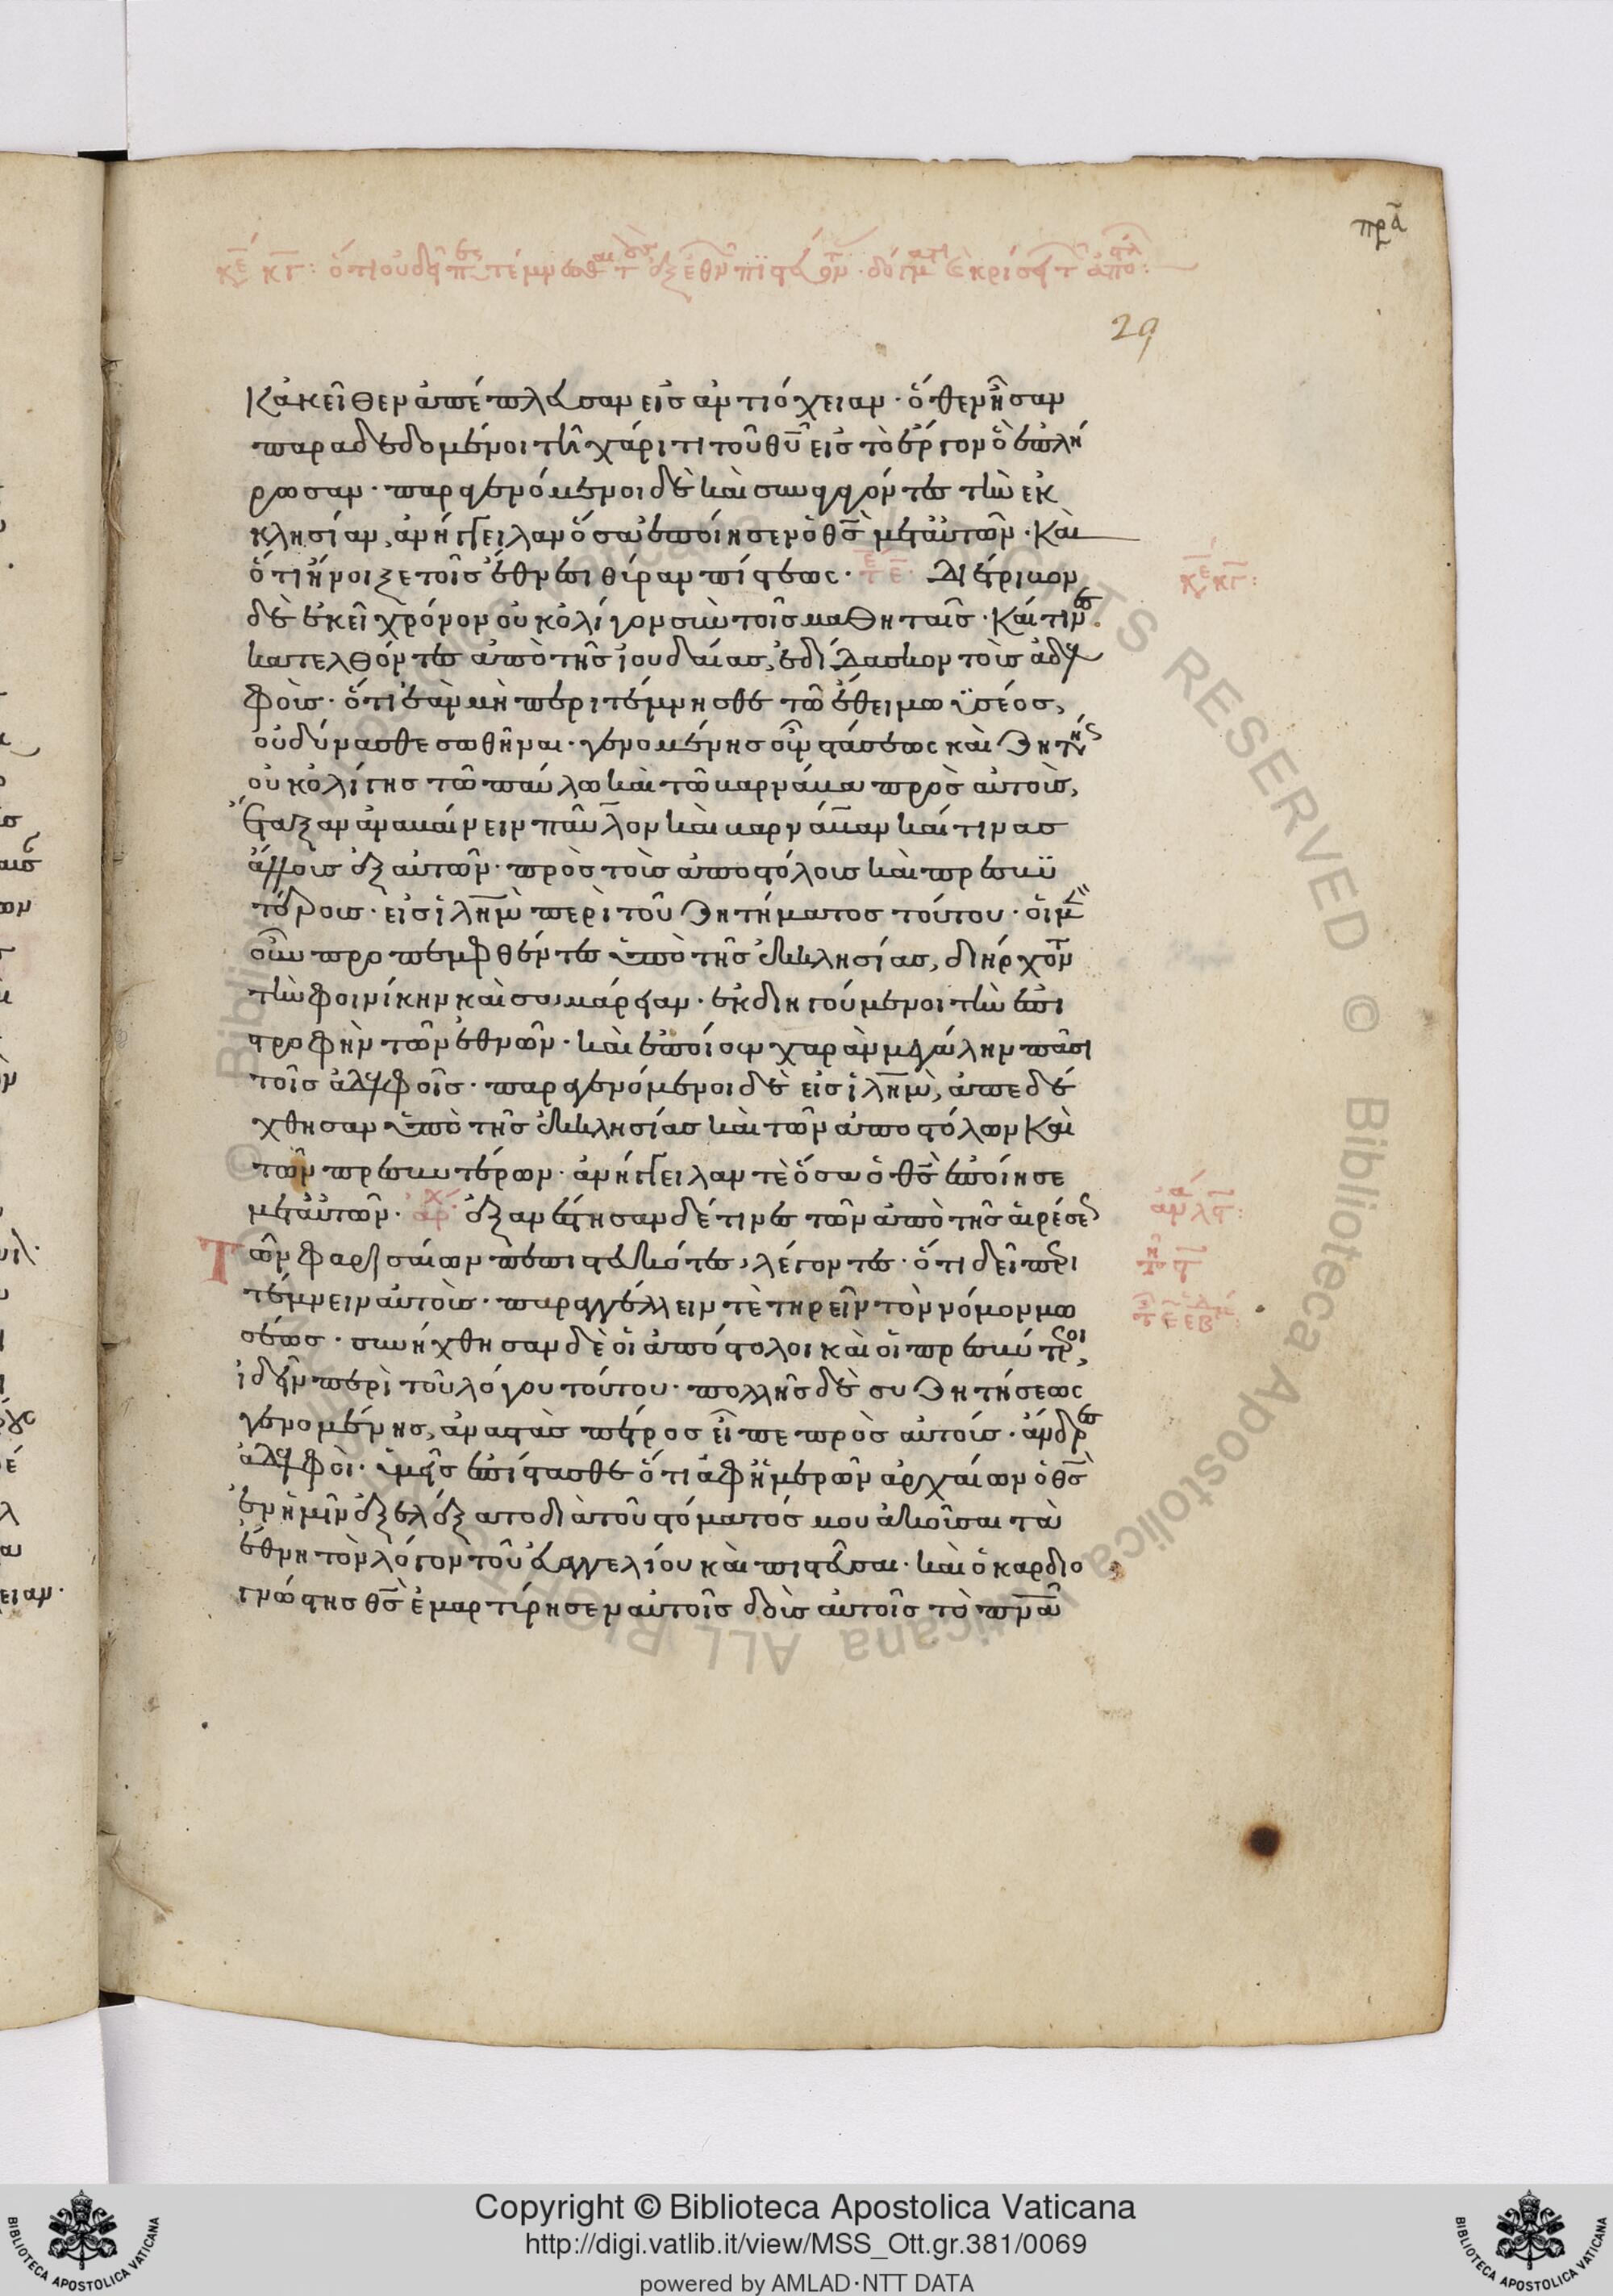 πρα
κε κγ: ὅτι οὐ δεῖ περιτέμνεσθαι τοὺς ἐξ ἐθνῶν πιστεύοντας· δόγματι ἐκρίσει τῶν ἀποστόλων:
29
Κἀκεῖθεν ἀπέπλευσαν εἰς ἀντιόχειαν· ὅθεν ἦσαν
παραδεδομένοι τῆ χάριτι τοῦ θυ εἰς τὸ ἔργον ὃ ἐπλή
ρωσαν· παραγενόμενοι δὲ καὶ συναγαγόντες τὴν ἐκ
κλησίαν, ἀνήγγειλαν ὅσα ἐποίησεν ὁ θς μετ αὐτῶν· Καὶ
ὅτι ἤνοιξε τοῖς ἔθνεσι θύραν πίστεως· τε Διέτριβον
κε κγ:
δὲ ἐκεῖ χρόνον οὐκ ὀλίγον σὺν τοῖς μαθηταῖς· Καί τινες
κατελθόντες ἀπὸ τῆς ἰουδαίας, ἐδίδασκον τοὺς ἀδελ
φοὺς· ὅτι ἐὰν μὴ περιτέμνησθε τῶ ἔθει μωϋσέος,
οὐ δύνασθε σωθῆναι· γενομένης οὖν στάσεως καὶ ζητήσεως
οὐκ ὀλίγης τῶ παύλω καὶ τῶ βαρνάβα πρὸς αὐτοὺς,
ἔταξαν ἀναβαίνειν παῦλον καὶ βαρνάβαν καί τινας
ἄλλους ἐξ αὐτῶν· πρὸς τοὺς ἀποστόλους καὶ πρεσβυ
τέρους· εἰς ἱλημ περὶ τοῦ ζητήματος τούτου· οἱ μὲν
οὖν προπεμφθέντες ὑπὸ τῆς ἐκκλησίας, διήρχοντο
τὴν φοινίκην καὶ σαμάρειαν· ἐκδιηγούμενοι τὴν ἐπι
στροφὴν τῶν ἐθνῶν· καὶ ἐποίουν χαρὰν μεγάλην πᾶσι
τοῖς ἀδελφοῖς· παραγενόμενοι δὲ εἰς ἱλημ, ἀπεδέ
χθησαν ὑπὸ τῆς ἐκκλησίας καὶ τῶν ἀποστόλων Καὶ
τῶν πρεσβυτέρων· ἀνήγγειλαν τὲ ὅσα ὁ θς ἐποίησε
μετ αὐτῶν· αρχ ἐξανέστησαν δέ τινες τῶν ἀπὸ τῆς αἱρέσε
Τῶν φαρισαίων πεπιστευκότες, λέγοντες· ὅτι δεῖ περι
τέμνειν αὐτοὺς· παραγγέλλειν τὲ τηρεῖν τὸν νόμον μω
σέως· συνήχθησαν δὲ οἱ ἀπόστολοι καὶ οἱ πρεσβύτεροι,
ἰδεῖν περὶ τοῦ λόγου τούτου· πολλῆς δὲ συζητήσεως
γενομένης, ἀναστὰς πέτρος εἶπε πρὸς αὐτούς· ἄνδρες
ἀδελφοὶ· ὑμεῖς ἐπίστασθε ὅτι ἀφ ἡμερῶν ἀρχαίων ὁ θς
ἐν ἡμῖν ἐξελέξατο διὰ τοῦ στόματός μου ἀκοῦσαι τὰ
ἔθνη τὸν λόγον τοῦ εὐαγγελίου καὶ πιστεῦσαι· καὶ ὁ καρδιο
γνώστης θς ἐμαρτύρησεν αὐτοῖς δοὺς αὐτοῖς τὸ πνα
Copyright © Biblioteca Apostolica Vaticana
http://digi.vatlib.it/view/MSS_Ott.gr.381/0069
powered by AMLAD·NTT DATA